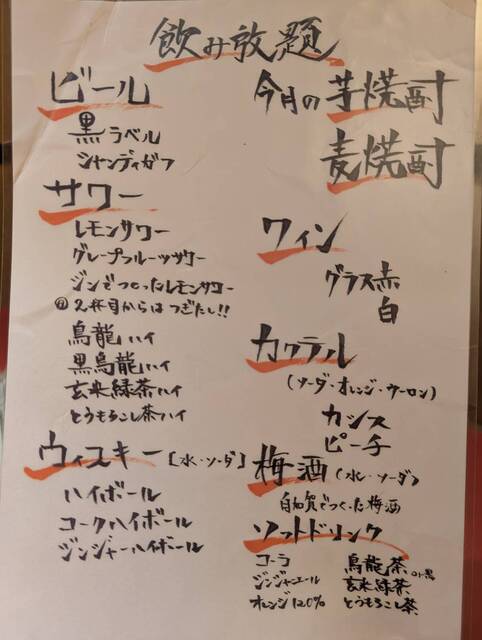 飲み放題
ビール
黒ラベル
シャンディガフ
サワー
レモンサワー
グレープフルーツサワー
ジンでつくったレモンサワー
2杯目からはつぎたし!!
烏龍ハイ
黒烏龍ハイ
玄米緑茶ハイ
とうもろこし茶ハイ
ウィスキー[水・ソーダ]
ハイボール
コークハイボール
ジンジャーハイボール
今月の芋焼酎
麦焼酎
ワイン
グラス赤
白
カクテル
(ソーダ・オレンジ・ウーロン)
カシス
ピーチ
梅酒(水・ソーダ)
白加賀でつくった梅酒
ソフトドリンク
コーラ
ジンジャーエール
オレンジ120%
烏龍茶
玄米緑茶
とうもろこし茶